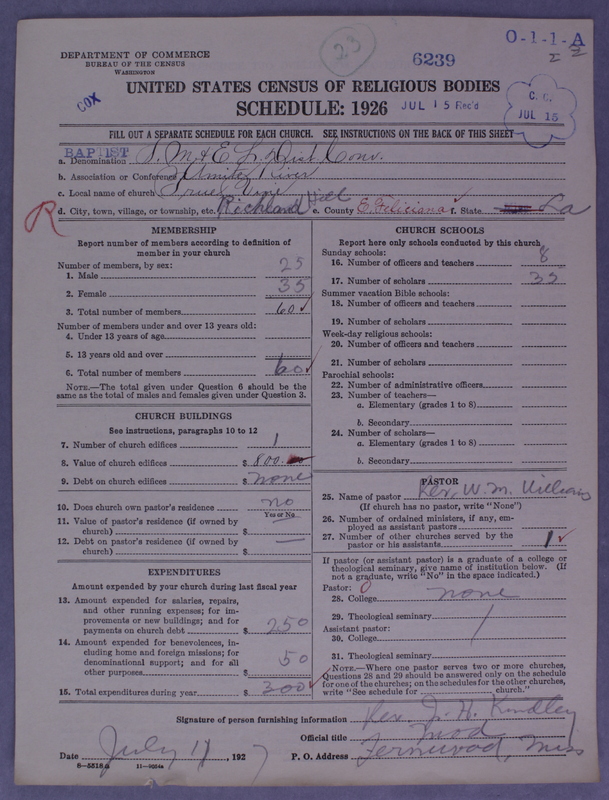 23
6239
O-1-1-A
DEPARTMENT OF COMMERCE
BUREAU OF THE CENSUS
WASHINGTON
COX
UNITED STATES CENSUS OF RELIGIOUS BODIES
SCHEDULE: 1926
JUL 15 Rec'd
C. O.
JUL 15
FILL OUT A SEPARATE SCHEDULE FOR EACH CHURCH. SEE INSTRUCTIONS ON THE BACK OF THIS SHEET
BAPTIST
a. Denomination S. M & E L. Dist Conv.
b. Association or Conference Amite River
c. Local name of church True Vine
R
d. City, town, village, or township, etc. Richland Hill e. County E. Feliciana f. State La
MEMBERSHIP
Report number of members according to definition of
member in your church
Number of members, by sex:
1. Male 25
2. Female 35
3. Total number of members 60
Number of members under and over 13 years old:
4. Under 13 years of age
5. 13 years old and over
6. Total number of members 60
NOTE.—The total given under Question 6 should be the
same as the total of males and females given under Question 3.
CHURCH BUILDINGS
See instructions, paragraphs 10 to 12
7. Number of church edifices 1
8. Value of church edifices $ 800.
9. Debt on church edifices $ none
10. Does church own pastor's residence no
Yes or No
11. Value of pastor's residence (if owned by
church) $ —
12. Debt on pastor's residence (if owned by
church) $ —
EXPENDITURES
Amount expended by your church during last fiscal year
13. Amount expended for salaries, repairs,
and other running expenses; for im-
provements or new buildings; and for
payments on church debt $ 250
14. Amount expended for benevolences, in-
cluding home and foreign missions; for
denominational support; and for all
other purposes $ 50
15. Total expenditures during year $ 300
CHURCH SCHOOLS
Report here only schools conducted by this church
Sunday schools:
16. Number of officers and teachers 8
17. Number of scholars 35
Summer vacation Bible schools:
18. Number of officers and teachers
19. Number of scholars
Week-day religious schools:
20. Number of officers and teachers
21. Number of scholars
Parochial schools:
22. Number of administrative officers
23. Number of teachers—
a. Elementary (grades 1 to 8)
b. Secondary
24. Number of scholars—
a. Elementary (grades 1 to 8)
b. Secondary
PASTOR
25. Name of pastor Rev. W. M. Williams
(If church has no pastor, write "None")
26. Number of ordained ministers, if any, em-
ployed as assistant pastors
27. Number of other churches served by the
pastor or his assistants 1
If pastor (or assistant pastor) is a graduate of a college or
theological seminary, give name of institution below. (If
not a graduate, write "No" in the space indicated.)
Pastor: 0
28. College none
29. Theological seminary
Assistant pastor:
30. College
31. Theological seminary
NOTE.—Where one pastor serves two or more churches,
Questions 28 and 29 should be answered only on the schedule
for one of the churches; on the schedules for the other churches,
write "See schedule for church."
Signature of person furnishing information Rev. J. H. Kindley
Official title Mod
Date July 11, 1927 P. O. Address Fernwood, Miss
8-5518a 11-9054a